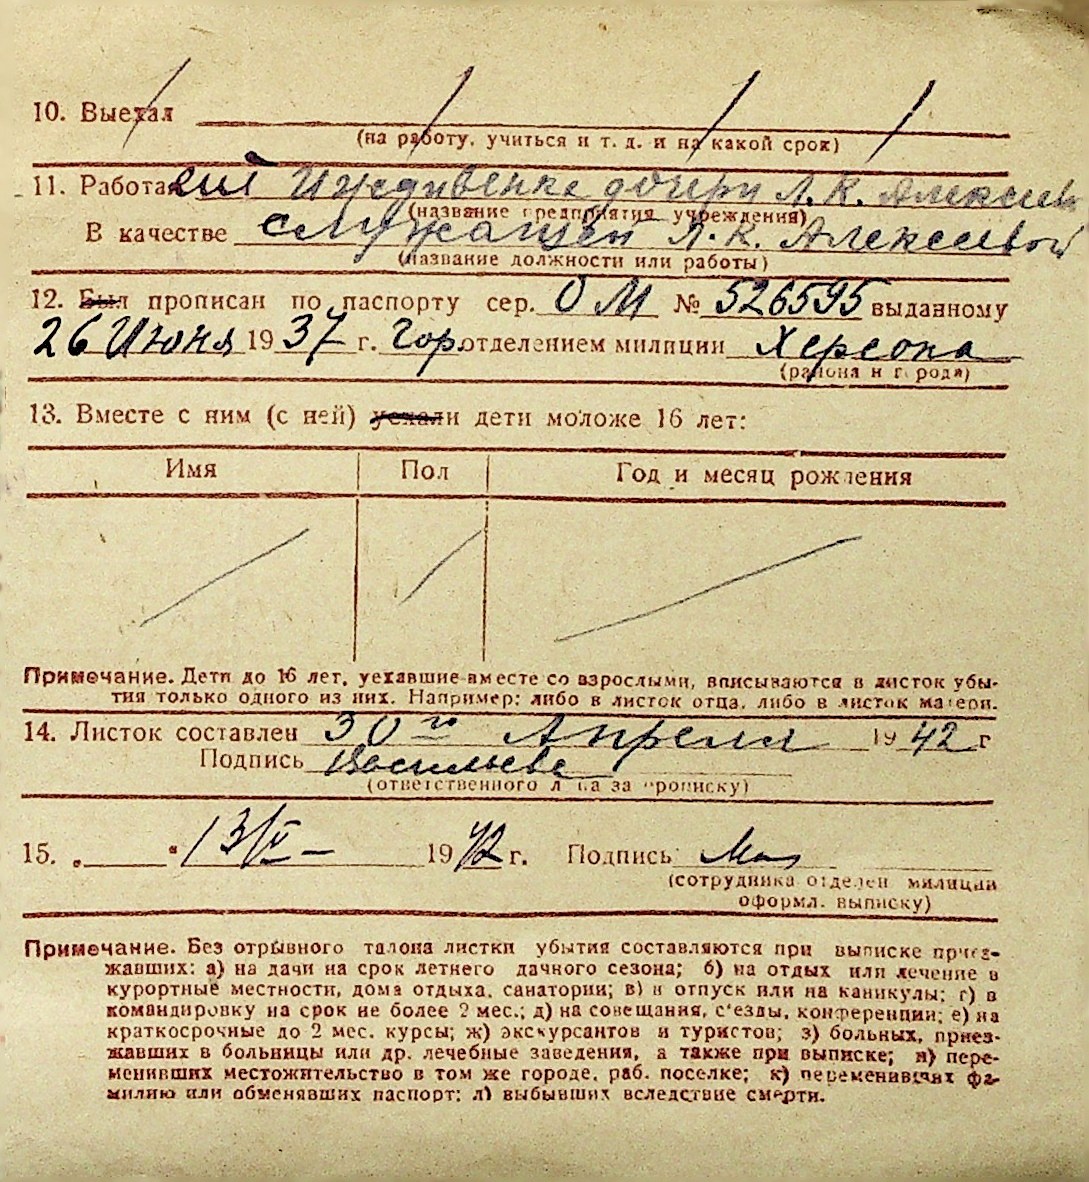 10. Выехал
(на работу, учиться и т. д. и на какой срок)
11. Работа Иждивенка дочери Л. К. Алексеев
(название предприятия учреждения)
В качестве служащей Л. К. Алексеевой
(название должности или работы)
12. Был прописан по паспорту сер. ОМ № 526595 выданному
26 Июня 1937 г. Гор.отделением милиции Херсона
(района и города)
13. Вместе с ним (с ней) уехали дети моложе 16 лет:
Имя Пол Год и месяц рождения
Примечание. Дети до 16 лет, уехавшие вместе со взрослыми, вписываются в листок убы-
тия только одного из них. Например: либо в листок отца, либо в листок матери.
14. Листок составлен 30го Апреля 1942 г
Подпись Васильева
(ответственного лица за прописку)
15. „ “ 13/V – 1942 г. Подпись
(сотрудника отделен милиции
оформл. выписку)
Примечание. Без отрывного талона листки убытия составляются при выписке приез-
жавших: а) на дачи на срок летнего дачного сезона; б) на отдых или лечение в
курортные местности, дома отдыха, санатории; в) в отпуск или на каникулы; г) в
командировку на срок не более 2 мес.; д) на совещания, с'езды, конференции; е) на
краткосрочные до 2 мес. курсы; ж) экскурсантов и туристов; з) больных, приез-
жавших в больницы или др. лечебные заведения, а также при выписке; и) пере-
менивших местожительство в том же городе, раб. поселке; к) переменивших фа-
милию или обменявших паспорт; л) выбывших вследствие смерти.